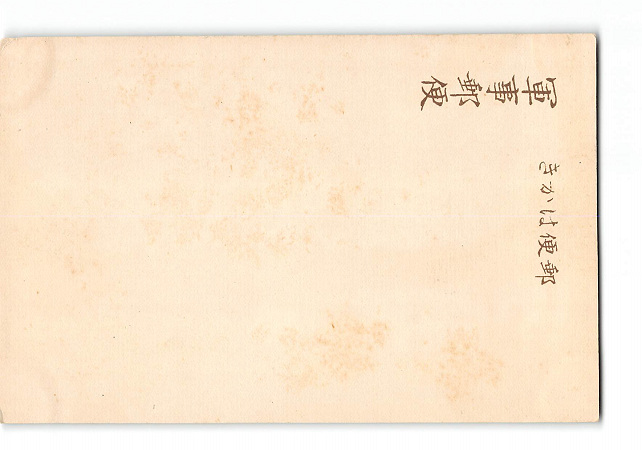 きかは便郵
軍事郵便